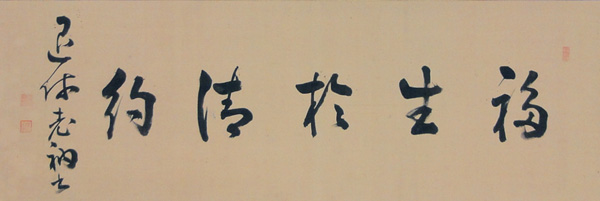 福生於清約
退休老衲書